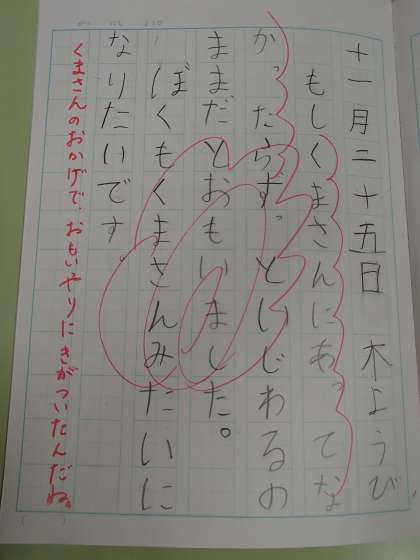 十一月二十五日 木ようび
もしくまさんにあってな
かったらずっといじわるの
ままだとおもいました。
ぼくもくまさんみたいに
なりたいです。
くまさんのおかげで、おもいやりにきがついたんだね。